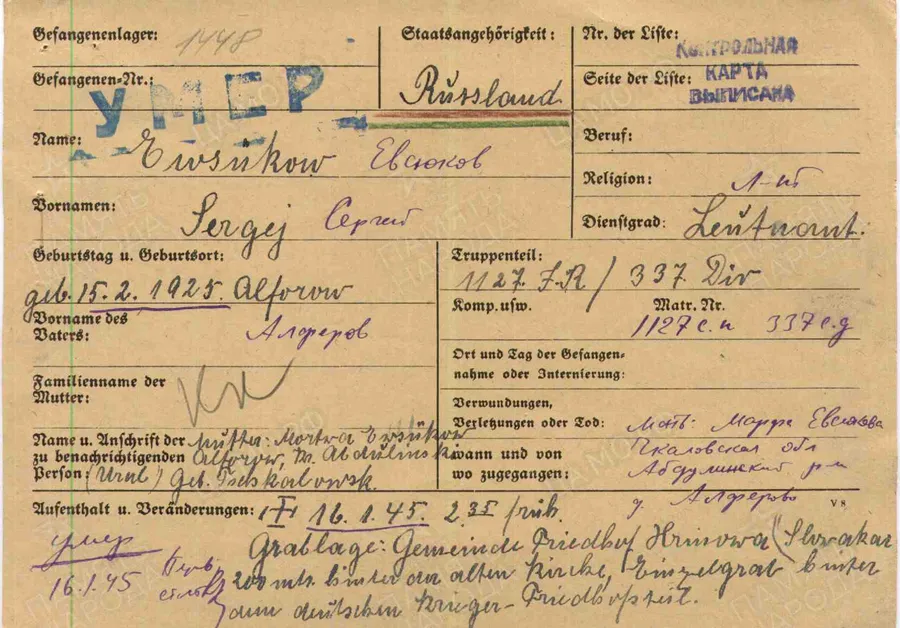 Gefangenenlager: 1448
Gefangenen-Nr.:
УМЕР
Staatsangehörigkeit:
Russland
Nr. der Liste:
КОНТРОЛЬНАЯ
Seite der Liste:
КАРТА
ВЫПИСАНА
Name: Ewsükow Евсюков
Beruf:
Religion: Л-нт
Vornamen: Sergej Сергей
Dienstgrad: Leutnant.
Geburtstag u. Geburtsort:
geb. 15.2.1925. Alforow
Vorname des
Vaters:
Алферов
Truppenteil:
1127. J.R / 337. Div
Komp.usw. Matr. Nr.
1127 с.п 337 с.д
Ort und Tag der Gefangen-
nahme oder Internierung:
Familienname der
Mutter:
Verwundungen,
Verletzungen oder Tod:
Мать: Марфа Евсюкова
wann und von
wo zugegangen:
Чкаловская обл
Абдулинский р-н
д. Алферово
Name u. Anschrift der
zu benachrichtigenden
Person:
Mutter: Ewsükow
Alforow, Abdulinski
(Ural) Geb. Tschkalowsk.
V8
Aufenthalt u. Veränderungen: 16.1.45. 2.35 früh.
Grablage: Gemeinde Friedhof Hrinowa (Slovakai
200 mtr. hinter der alten Kirche, Einzelgrab hinter
dem deutschen Krieger-Friedhofsteil.
умер
16.1.45